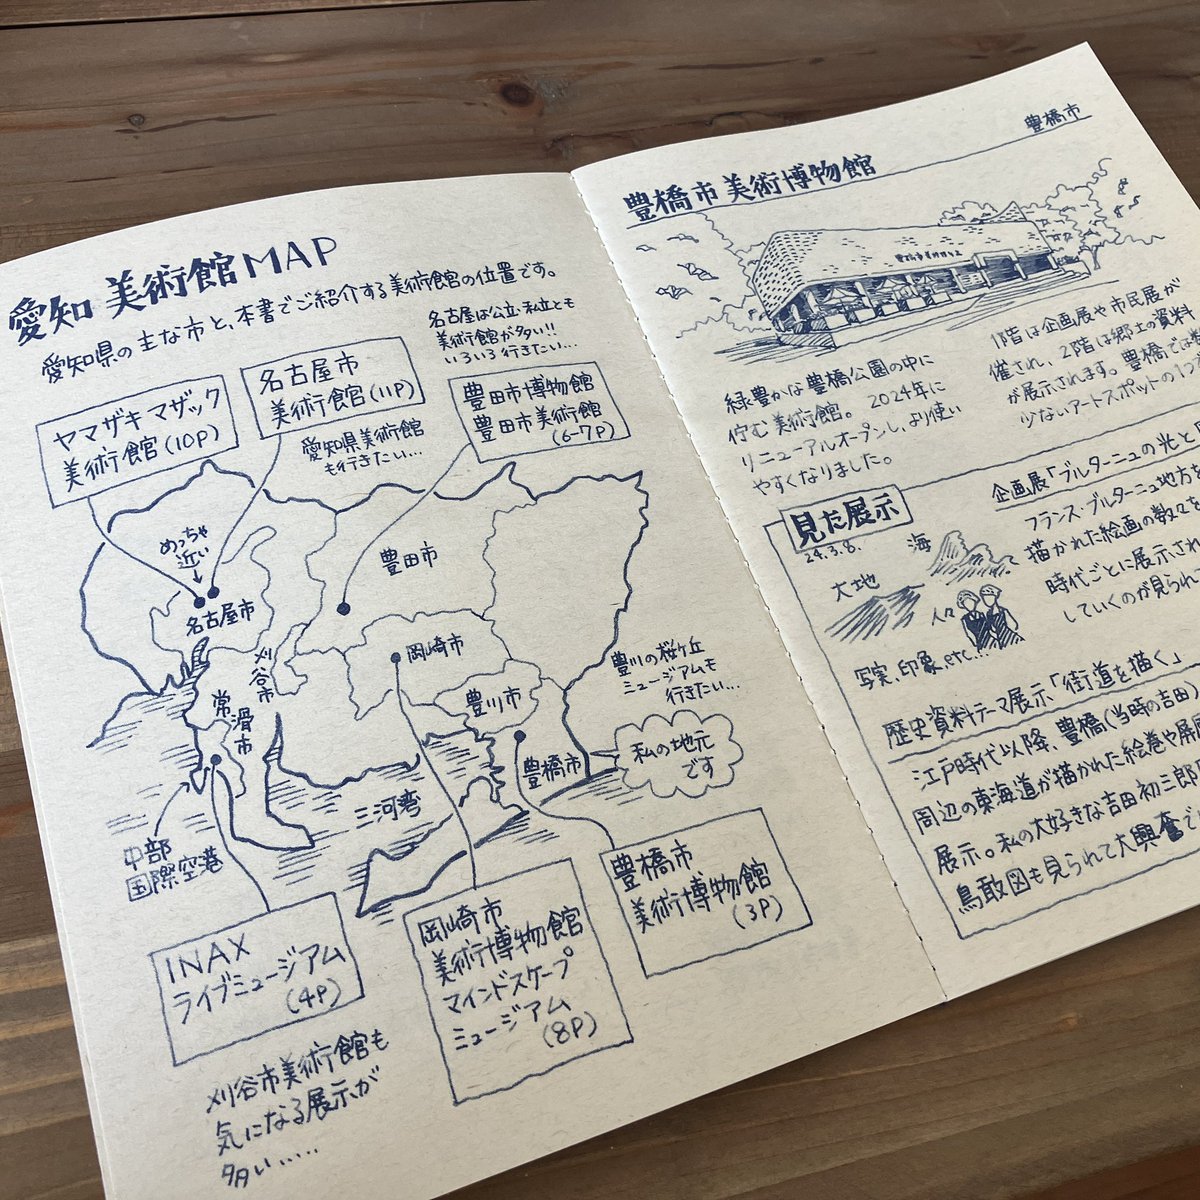 愛知 美術館MAP
愛知県の主な市と、本書でご紹介する美術館の位置です。
名古屋は公立・私立とも
美術館が多い!!
いろいろ行きたい…
ヤマザキマザック
美術館(10P)
名古屋市
美術館(11P)
愛知県美術館
も行きたい…
豊田市博物館
豊田市美術館
(6-7P)
めっちゃ
近い
名古屋市
豊田市
刈谷市
岡崎市
常滑市
豊川市
豊橋市
三河湾
豊川の桜ヶ丘
ミュージアムも
行きたい…
私の地元
です
中部
国際空港
INAX
ライブミュージアム
(4P)
岡崎市
美術博物館
マインドスケープ
ミュージアム
(8P)
豊橋市
美術博物館
(3P)
刈谷市美術館も
気になる展示が
多い……
豊橋市
豊橋市美術博物館
緑豊かな豊橋公園の中に
佇む美術館。2024年に
リニューアルオープンし、より使い
やすくなりました。
1階は企画展や市民展が
催され、2階は郷土の資料
が展示されます。豊橋では
少ないアートスポットの1つ
見た展示
24.3.8.
企画展「ブルターニュの光と
フランス・ブルターニュ地方を
描かれた絵画の数々を
時代ごとに展示され
していくのが見られて
海
大地
人々
写実、印象、etc…
歴史資料テーマ展示「街道を描く」
江戸時代以降、豊橋(当時の吉田)
周辺の東海道が描かれた絵巻や屏風
展示。私の大好きな吉田初三郎
鳥瞰図も見られて大興奮で